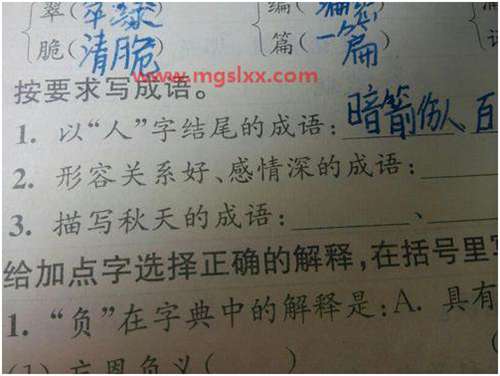 翠(翠绿
编(
脆(清脆)
篇(一篇
www.mgslxx.com
按要求写成语。
1. 以“人”字结尾的成语:暗箭伤人 百
2. 形容关系好、感情深的成语:
3. 描写秋天的成语: 、
给加点字选择正确的解释,在括号里
1. “负”在字典中的解释是:A. 具有
(1) 忘恩负义( )